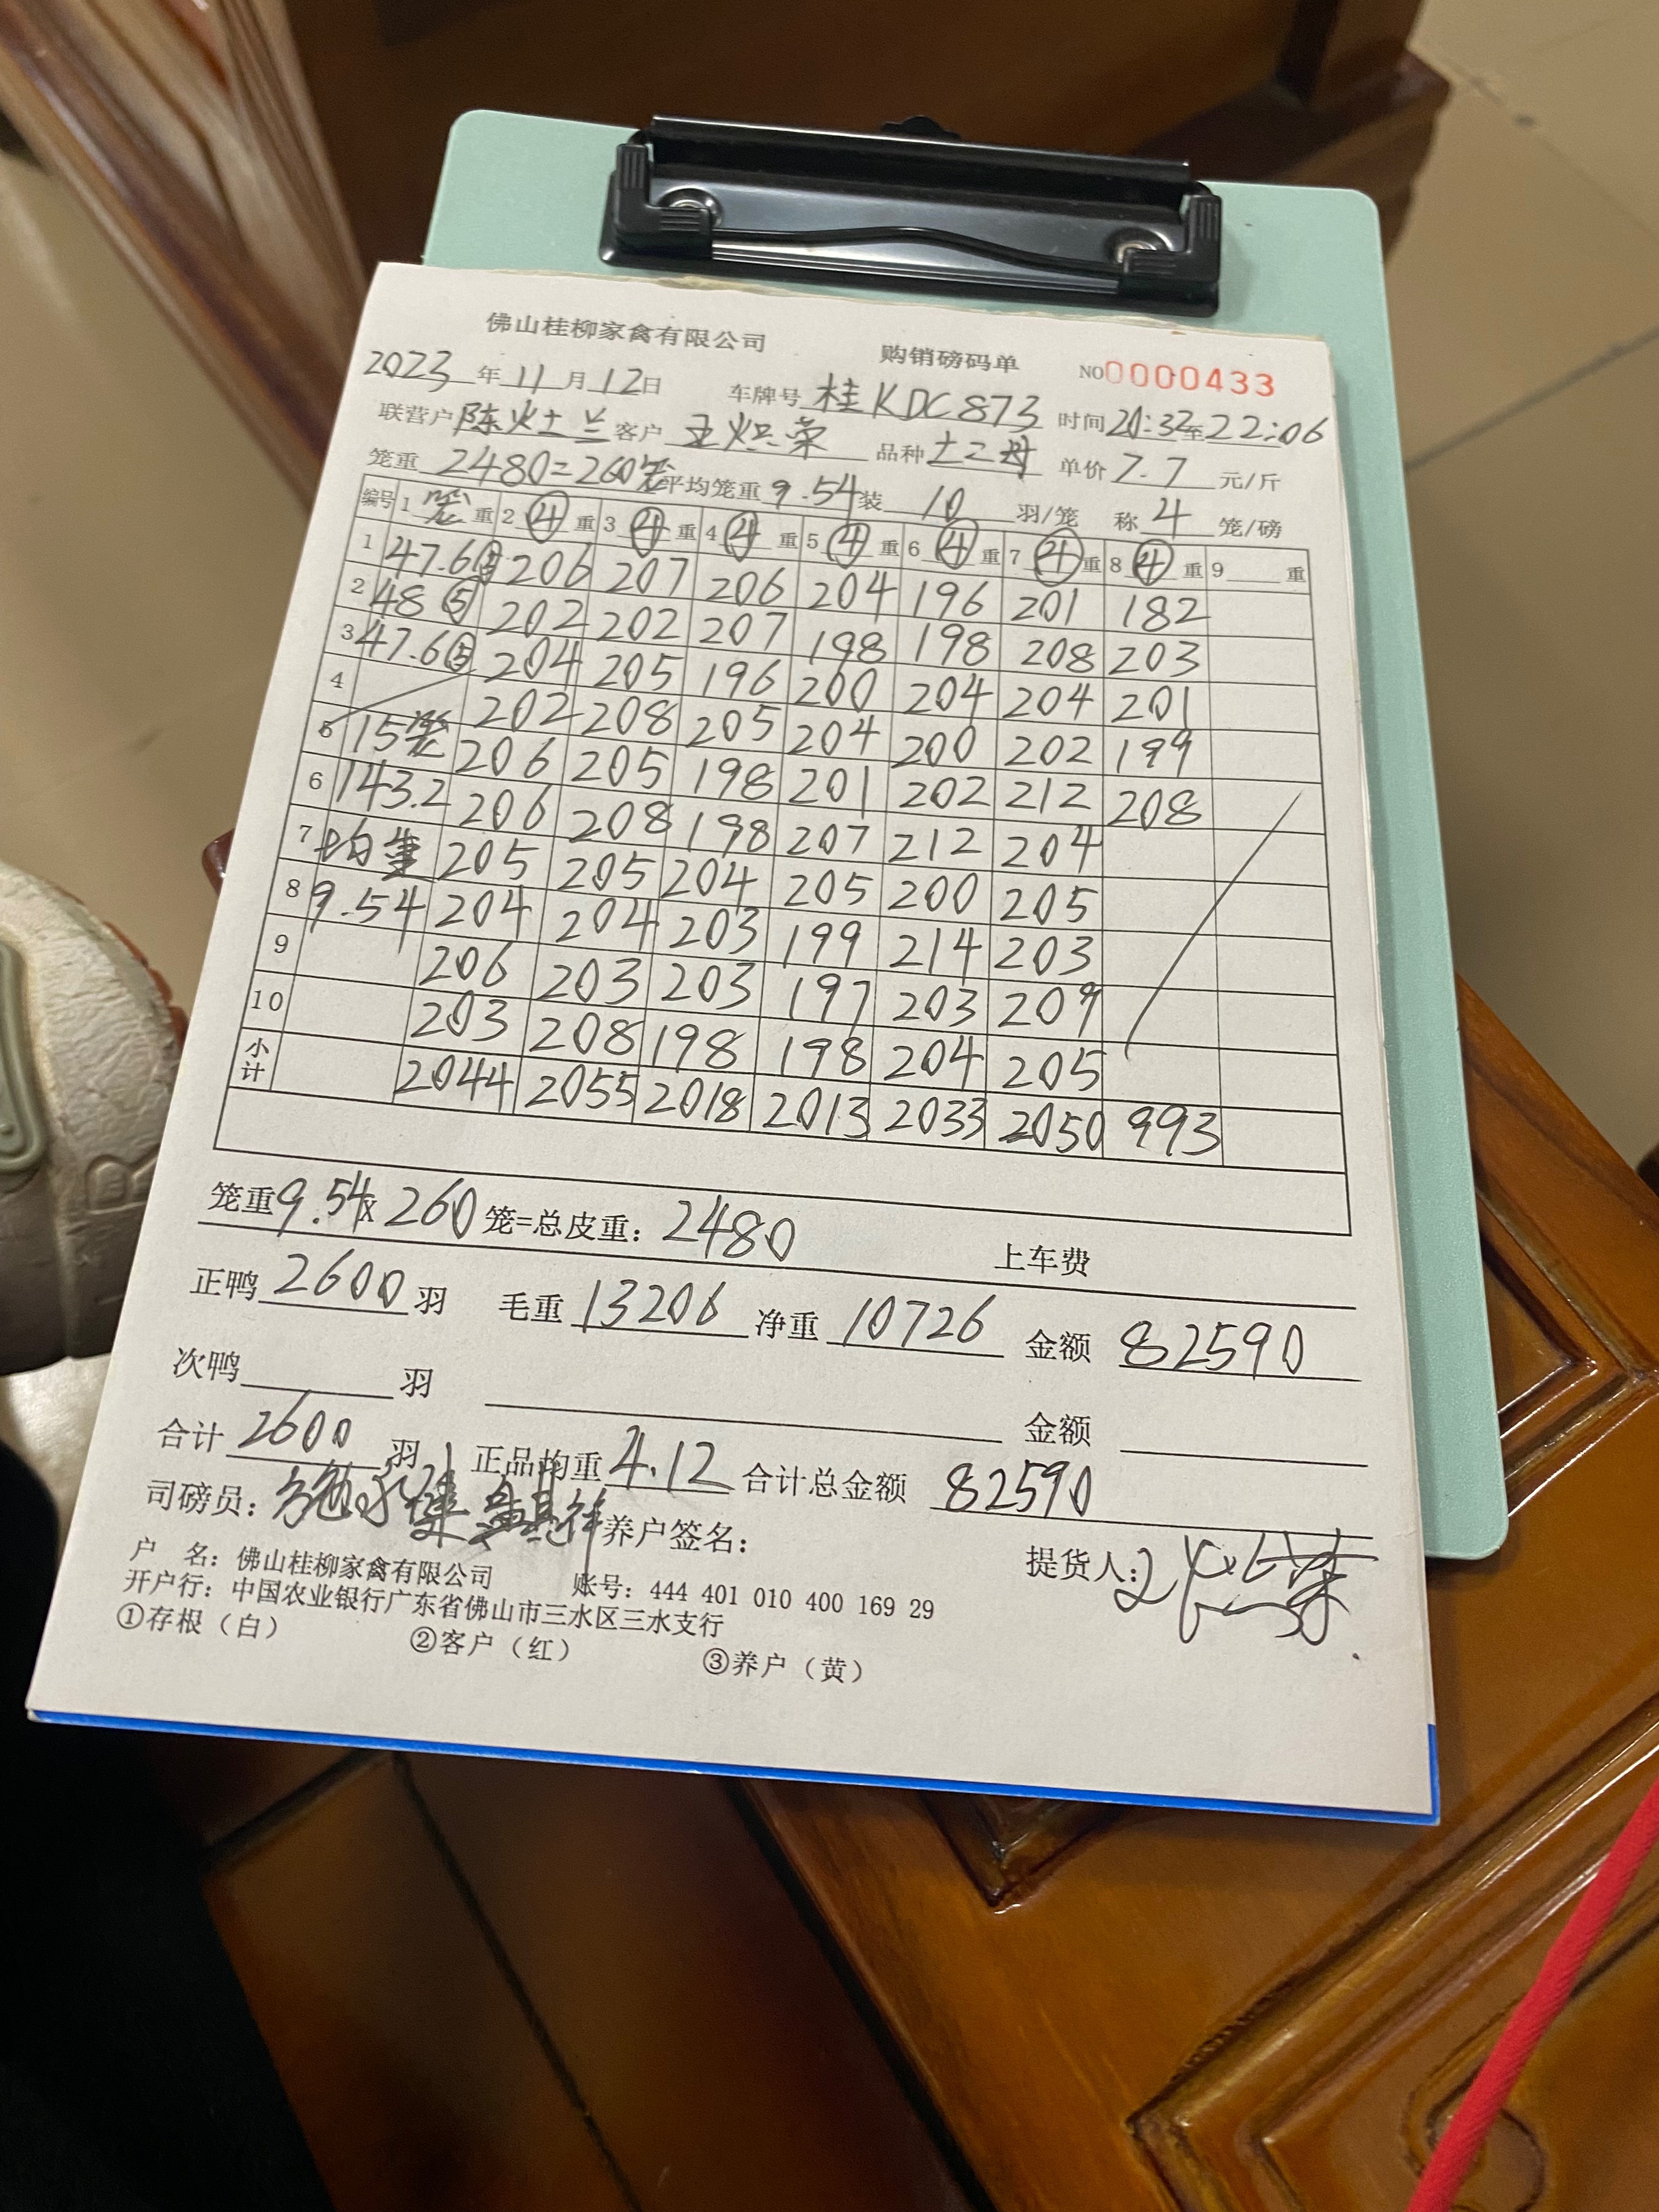 佛山桂柳家禽有限公司 购销磅码单 NO0000433
2023年11月12日 车牌号 桂KDC873 时间20:32至22:06
联营户 陈火土兰 客户 王炽荣 品种 土二母 单价 7.7 元/斤
笼重 2480=260笼 平均笼重 9.54 装 10 羽/笼 称 4 笼/磅
编号 1 笼 重 2 ④ 重 3 ④ 重 4 ④ 重 5 ④ 重 6 ④ 重 7 ④ 重 8 ④ 重 9 重
1 47.6⑤ 206 207 206 204 196 201 182
2 48⑤ 202 202 207 198 198 208 203
3 47.6⑤ 204 205 196 200 204 204 201
4 202 208 205 204 200 202 199
5 15笼 206 205 198 201 202 212 208
6 143.2 206 208 198 207 212 204
7 均重 205 205 204 205 200 205
8 9.54 204 204 203 199 214 203
9 206 203 203 197 203 209
10 203 208 198 198 204 205
小计 2044 2055 2018 2013 2033 2050 993
笼重9.54x260笼=总皮重：2480 上车费
正鸭 2600 羽 毛重 13206 净重 10726 金额 82590
次鸭 羽 金额
合计 2600 羽 正品均重 4.12 合计总金额 82590
司磅员： 养户签名： 提货人：
户 名：佛山桂柳家禽有限公司 账号：444 401 010 400 169 29
开户行：中国农业银行广东省佛山市三水区三水支行
①存根（白） ②客户（红） ③养户（黄）